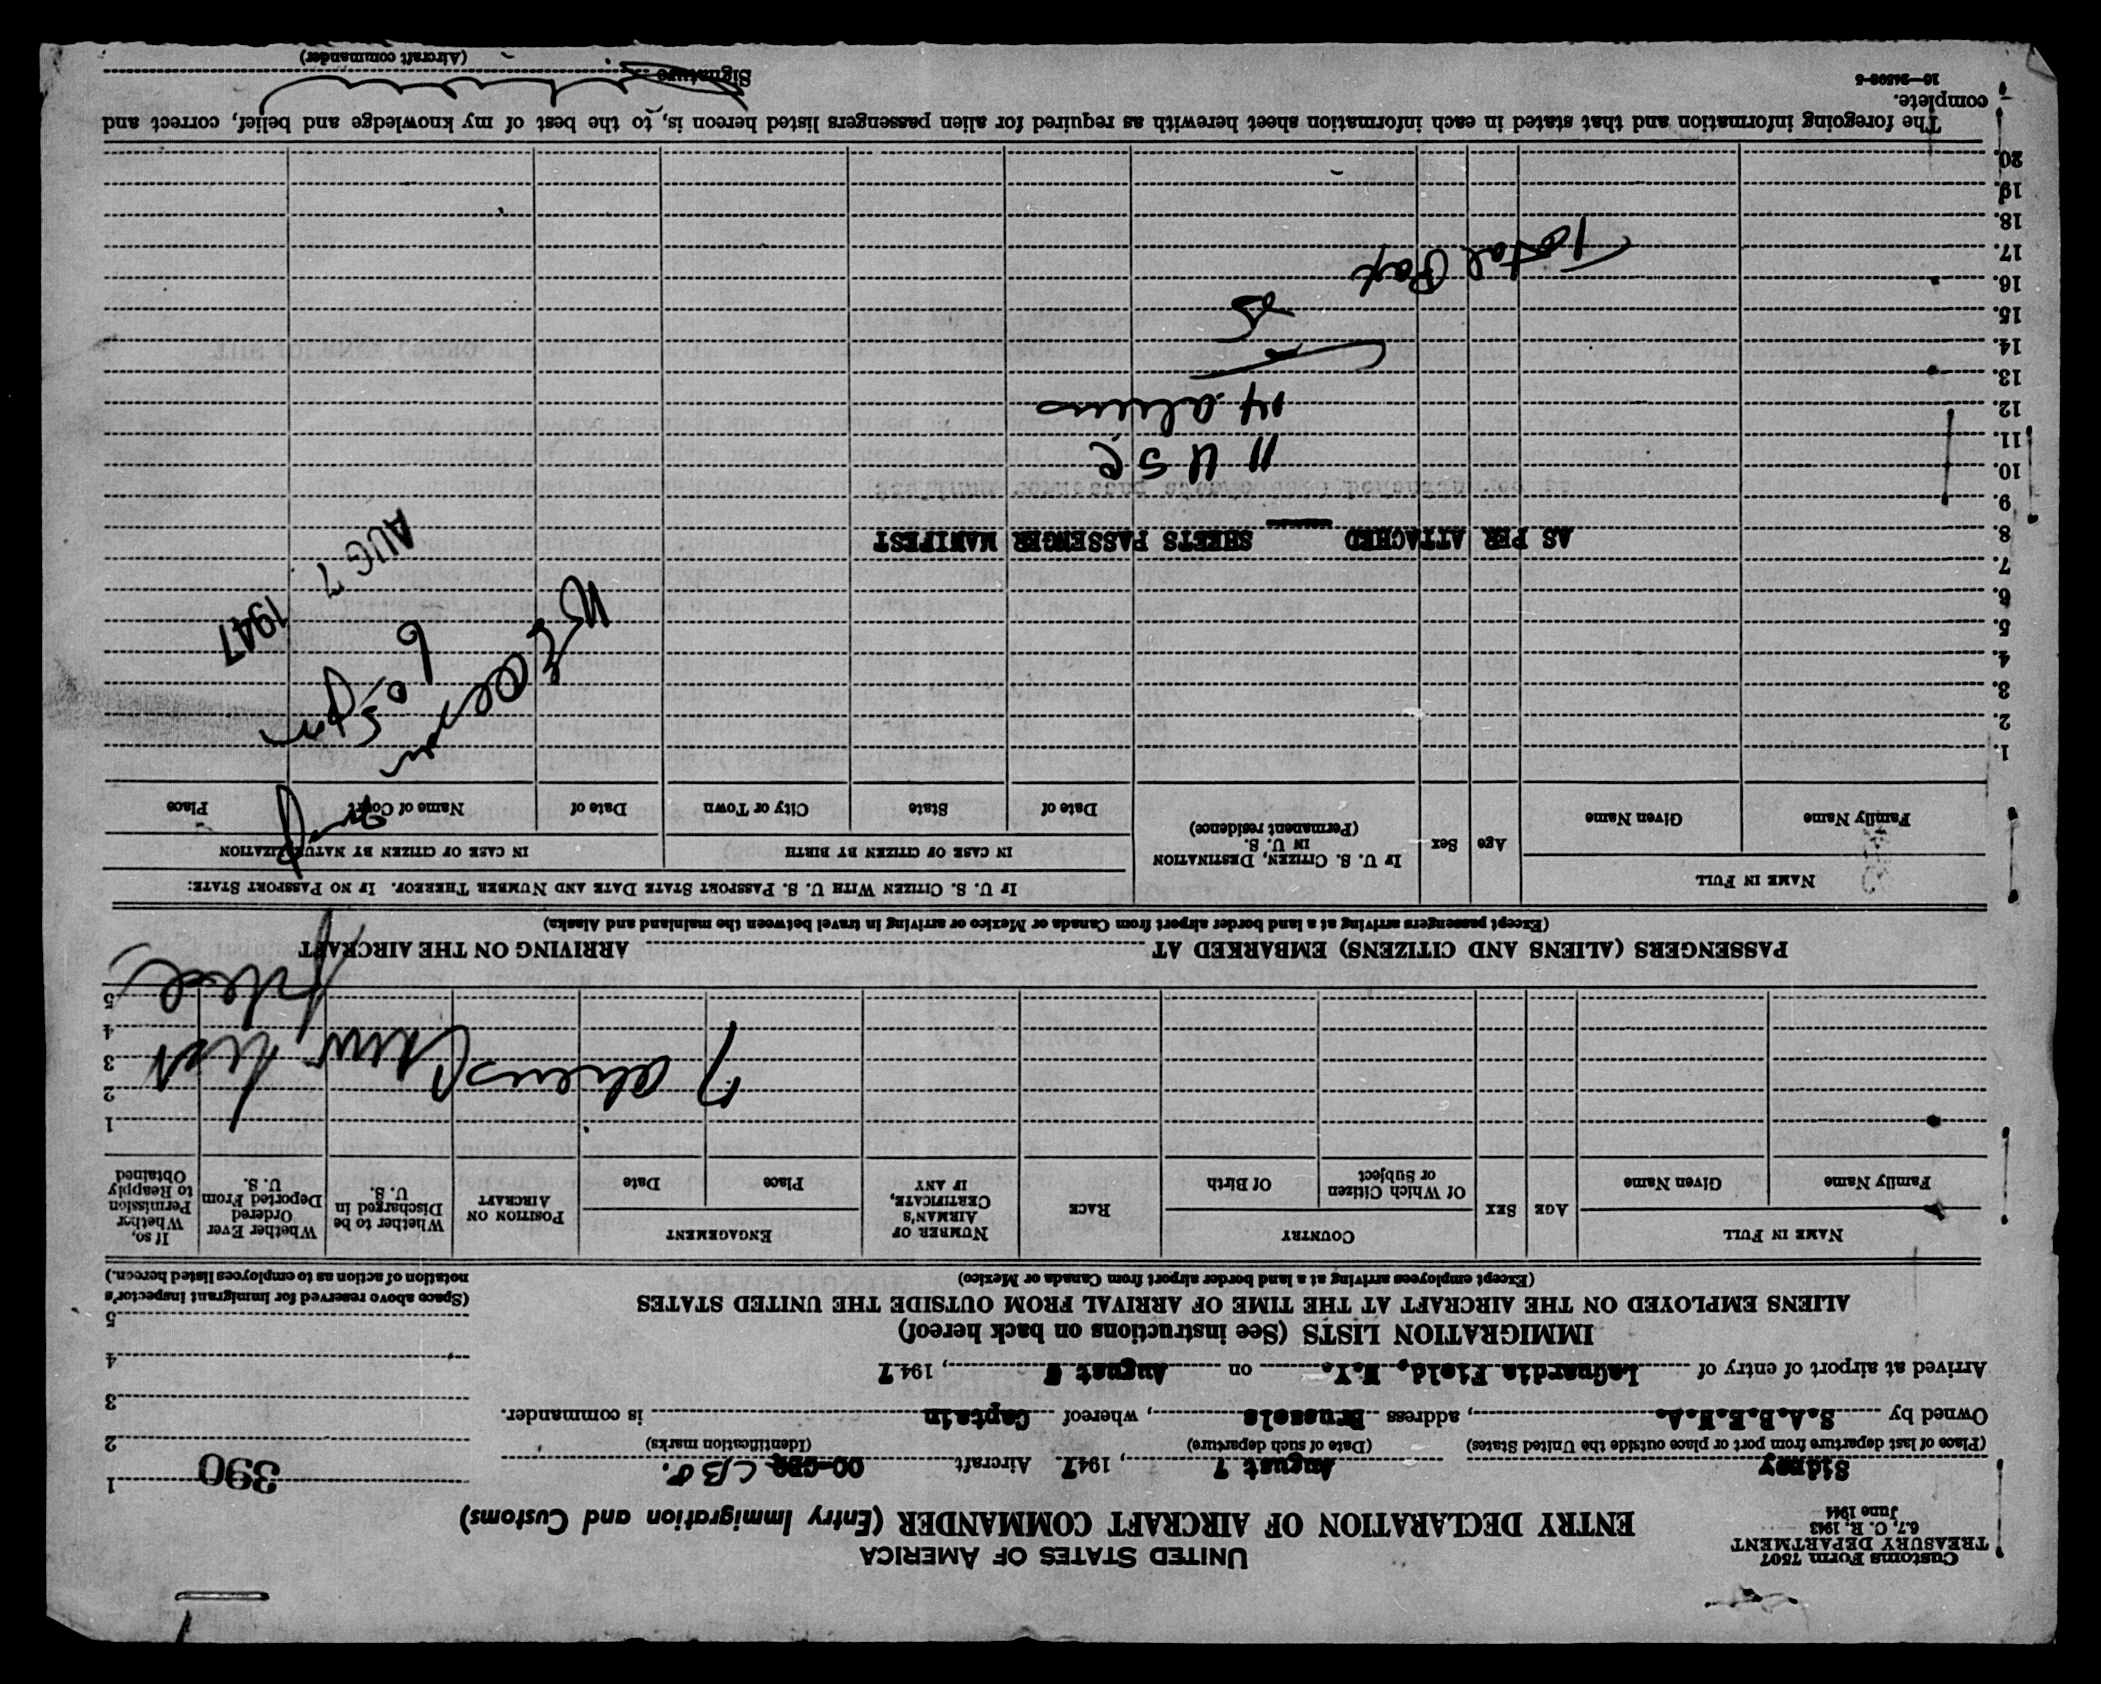 Customs Form 7507
TREASURY DEPARTMENT
6.7, C. R. 1943
June 1944
UNITED STATES OF AMERICA
ENTRY DECLARATION OF AIRCRAFT COMMANDER (Entry Immigration and Customs)
390
1
2
3
4
5
(Space above reserved for immigrant inspector's notation of action as to employees listed hereon.)
Sidney August 7, 1947. Aircraft OO-CBQ CBO.
(Place of last departure from port or place outside the United States) (Date of such departure) (Identification marks)
Owned by S.A.B.E.N.A., address Brussels, whereof Captain is commander.
Arrived at airport of entry of LaGuardia Field, N.Y. on August, 1947
IMMIGRATION LISTS (See instructions on back hereof)
ALIENS EMPLOYED ON THE AIRCRAFT AT THE TIME OF ARRIVAL FROM OUTSIDE THE UNITED STATES
(Except employees arriving at a land border airport from Canada or Mexico)
NAME IN FULL
Family Name
Given Name
AGE
SEX
COUNTRY
Of Which Citizen or Subject
Of Birth
RACE
NUMBER OF AIRMAN'S CERTIFICATE, IF ANY
ENGAGEMENT
Place
Date
POSITION ON AIRCRAFT
Whether to be Discharged in U. S.
Whether Ever Ordered Deported From U. S.
If so, Whether Permission to Reapply Obtained
1
2
3
4
5
7 aliens Crew list
PASSENGERS (ALIENS AND CITIZENS) EMBARKED AT ARRIVING ON THE AIRCRAFT
(Except passengers arriving at a land border airport from Canada or Mexico or arriving in travel between the mainland and Alaska)
NAME IN FULL
Family Name
Given Name
Age
Sex
IF U. S. CITIZEN, DESTINATION IN U. S. (Permanent residence)
IF U. S. CITIZEN WITH U. S. PASSPORT STATE DATE AND NUMBER THEREOF. IF NO PASSPORT STATE:
IN CASE OF CITIZEN BY BIRTH
Date of
State
City or Town
IN CASE OF CITIZEN BY NATURALIZATION
Date of
Name of Court
Place
1.
2.
3.
4.
5.
6.
7.
8. AS PER ATTACHED SHEETS PASSENGER MANIFEST
AUG 7 1947
9.
10. 11 USC
11.
12. 14 aliens
13.
14.
15. 25
16. Total Pax
17.
18.
19.
20.
The foregoing information and that stated in each information sheet herewith as required for alien passengers listed hereon is, to the best of my knowledge and belief, correct and complete.
16—24508-5
Signature
(Aircraft commander)